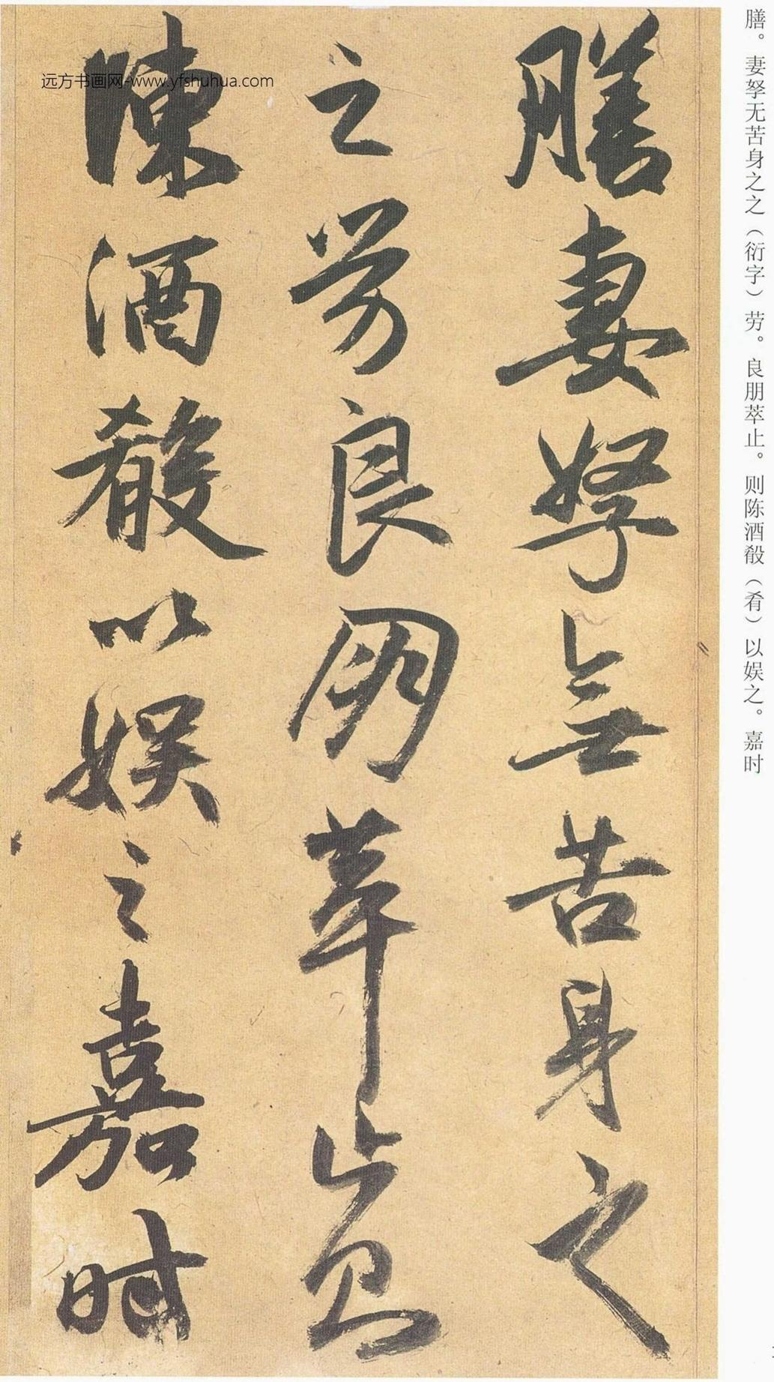 膳。妻孥无苦身之之（衍字）劳。良朋萃止。则陈酒殽（肴）以娱之。嘉时
膳妻孥無苦身之
之勞良朋萃止則
陳酒殽以娛之嘉時
远方书画网-www.yfshuhua.com